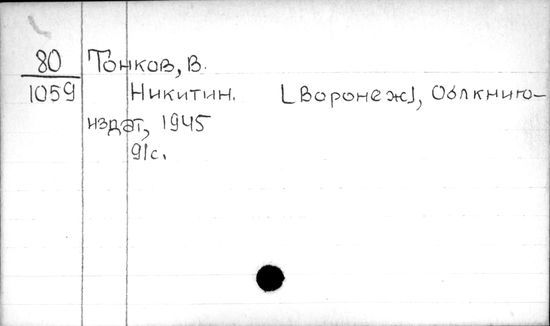 80 Тонков, В.
1059 Никитин. [Воронеж], Облкниго-
издат, 1945
91с.